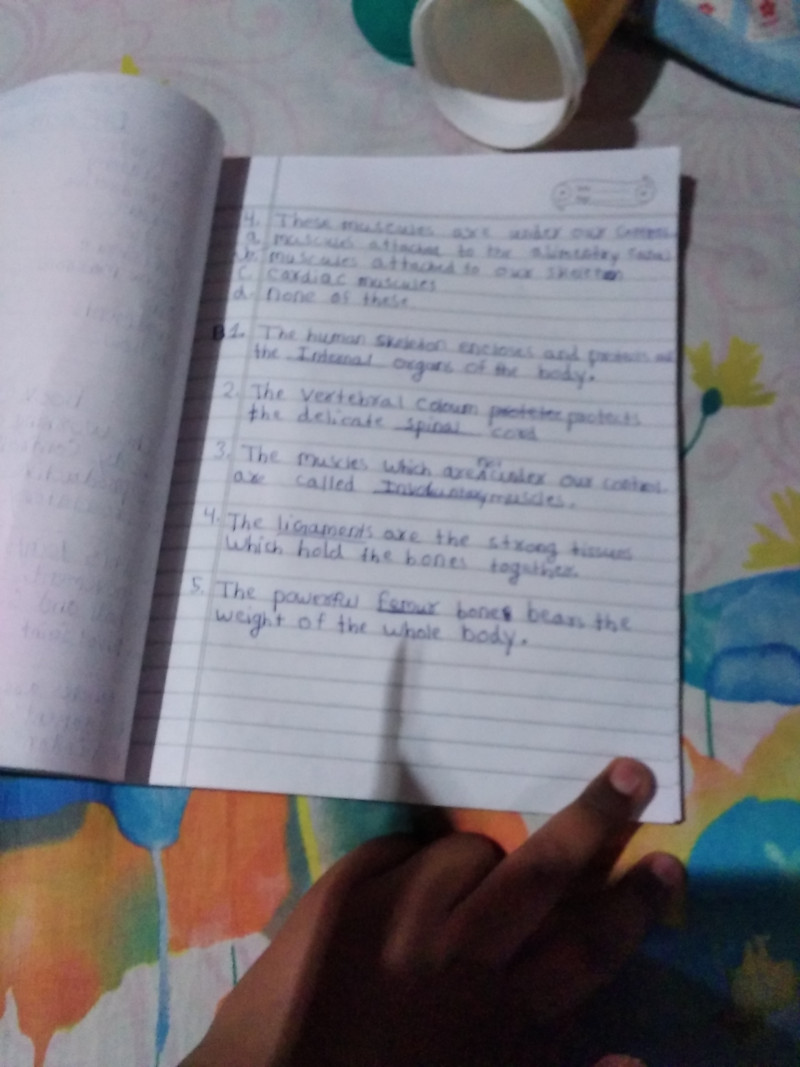 4. These muscules are under our control
a. muscules attached to the alimentry canal
b. muscules attached to our skeleton
c. cardiac muscules
d. none of these
B1. The human skeleton encloses and protects all
the Internal organs of the body.
2. The vertebral coloum protects
the delicate spinal cord
3. The muscles which are not under our control
are called Involuntary muscles.
4. The ligaments are the strong tissues
which hold the bones together.
5. The powerful femur bones bears the
weight of the whole body.